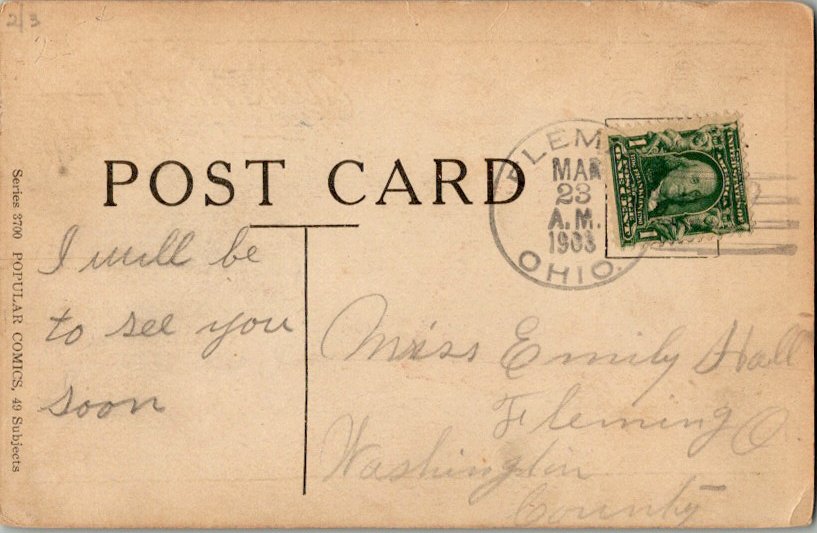 2/3
POST CARD
FLEM
MAR
23
A.M.
1908
OHIO.
1
1
Series 3700 POPULAR COMICS, 49 Subjects
I will be
to see you
soon
Miss Emily Hall
Fleming O.
Washington
County